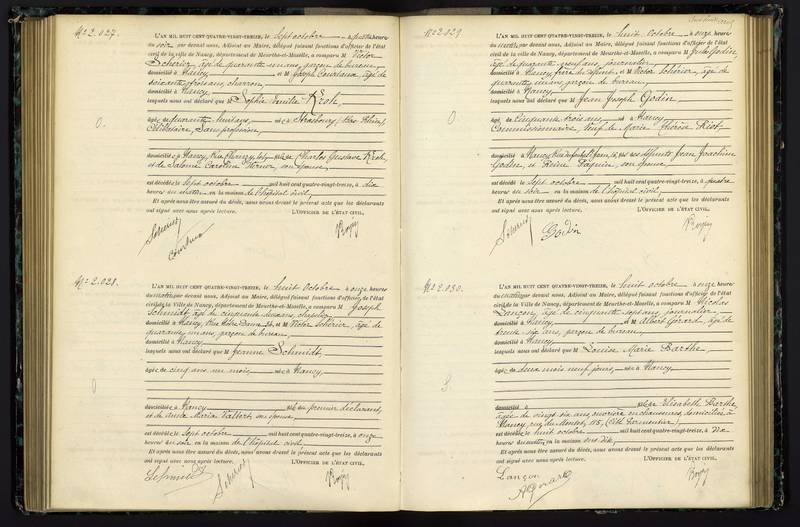 No 2.027.
L'AN MIL HUIT CENT QUATRE-VINGT-TREIZE, le sept octobre à quatre heures
du soir, par devant nous, Adjoint au Maire, délégué faisant fonctions d'officier de l'état
civil de la ville de Nancy, département de Meurthe-et-Moselle, a comparu M Victor
Scherier, âgé de quarante un ans, garçon de bureau,
domicilié à Nancy et M Joseph Courteaux, âgé de
soixante trois ans, charron,
domicilié à Nancy
lesquels nous ont déclaré que M Sophie Emilie Kroh,
âgée de quarante huit ans, née à Strasbourg (Bas Rhin)
Célibataire, Sans profession,
0.
domiciliée à Nancy, Rue fille de Charles Gustave Kroh
et de Salomé Caroline Werner, son épouse
est décédée le sept octobre mil huit cent quatre-vingt-treize, à dix
heures du matin en la maison de l'hôpital civil,
Et après nous être assuré du décès, nous avons dressé le présent acte que les déclarants
ont signé avec nous après lecture. L'OFFICIER DE L'ÉTAT CIVIL,
No 2.028.
L'AN MIL HUIT CENT QUATRE-VINGT-TREIZE, le huit Octobre à onze heures
du matin, par devant nous, Adjoint au Maire, délégué faisant fonctions d'officier de l'état
civil de la Ville de Nancy, département de Meurthe-et-Moselle, a comparu M Joseph
Schmidt, âgé de cinquante deux ans,
domicilié à Nancy, Rue Notre Dame et M Victor Scherier, âgé de
quarante un ans, garçon de bureau,
domicilié à Nancy
lesquels nous ont déclaré que M Jeanne Schmidt,
âgée de cinq ans, un mois, née à Nancy,
0
domiciliée à Nancy fille du premier déclarant,
et de Anne Maria Valbert, son épouse
est décédée le sept octobre mil huit cent quatre-vingt-treize, à onze
heures du soir en la maison de l'hôpital civil,
Et après nous être assuré du décès, nous avons dressé le présent acte que les déclarants
ont signé avec nous après lecture. L'OFFICIER DE L'ÉTAT CIVIL,
No 2.029
L'AN MIL HUIT CENT QUATRE-VINGT-TREIZE, le huit Octobre à onze heures
du matin, par devant nous, Adjoint au Maire, délégué faisant fonctions d'officier de l'état
civil de la Ville de Nancy, département de Meurthe-et-Moselle, a comparu M Jules Godin,
âgé de quarante neuf ans, journalier,
domicilié à Nancy, frère du défunt et M Victor Scherier, âgé de
quarante un ans, garçon de bureau,
domicilié à Nancy
lesquels nous ont déclaré que M Jean Joseph Godin
âgé de cinquante trois ans, né à Nancy
Commissionnaire, Veuf de Marie Thérèse Riot,
0
domicilié à Nancy, fils des défunts Jean Joachim
Godin et Reine Paquin, son épouse
est décédé le sept octobre mil huit cent quatre-vingt-treize, à quatre
heures du soir en la maison de l'hôpital civil,
Et après nous être assuré du décès, nous avons dressé le présent acte que les déclarants
ont signé avec nous après lecture. L'OFFICIER DE L'ÉTAT CIVIL,
Godin
No 2.030.
L'AN MIL HUIT CENT QUATRE-VINGT-TREIZE, le huit octobre à onze heures
du matin, par devant nous, Adjoint au Maire, délégué faisant fonctions d'officier de l'état
civil de la Ville de Nancy, département de Meurthe-et-Moselle, a comparu M Nicolas
Lançon, âgé de cinquante sept ans, journalier
domicilié à Nancy et M Albert Gérard, âgé de
trente six ans, garçon de bureau,
domicilié à Nancy
lesquels nous ont déclaré que M Louise Marie Barthe
âgée de deux mois neuf jours, née à Nancy,
domiciliée à fille de Elisabeth Barthe,
âgée de vingt six ans, ouvrière en chaussures, domiciliée à
Nancy, rue du Montet, 115,
est décédée le huit octobre mil huit cent quatre-vingt-treize, à
heures du matin en la maison sus dite,
Et après nous être assuré du décès, nous avons dressé le présent acte que les déclarants
ont signé avec nous après lecture. L'OFFICIER DE L'ÉTAT CIVIL,
Lançon
AGérard